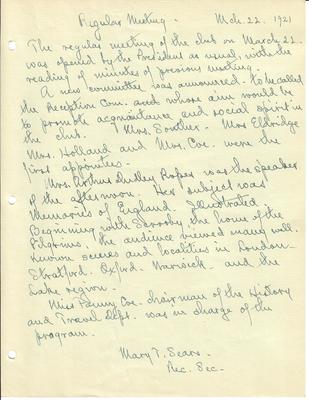 Regular Meeting - Mch. 22. 1921
The regular meeting of the club on March 22
was opened by the President as usual, with the
reading of minutes of previous meeting.
A new committee was announced - to be called
the Reception Com. and whose aim would be
to promote acquaintance and social spirit in
the club. Mrs. Souther - Mrs Eldridge
Mrs. Holland and Mrs. Coe were the
first appointees -
Mrs. Arthur Dudley Ropes was the speaker
of the afternoon. Her subject was
Memories of England. Illustrated.
Beginning with Scrooby the home of the
Pilgrims, the audience viewed many well
known scenes and localities in London -
Stratford. Oxford. Warwick - and the
Lake region.
Miss Fanny Coe - chairman of the History
and Travel Dept. was in charge of the
program.
Mary T. Sears -
Rec. Sec. -